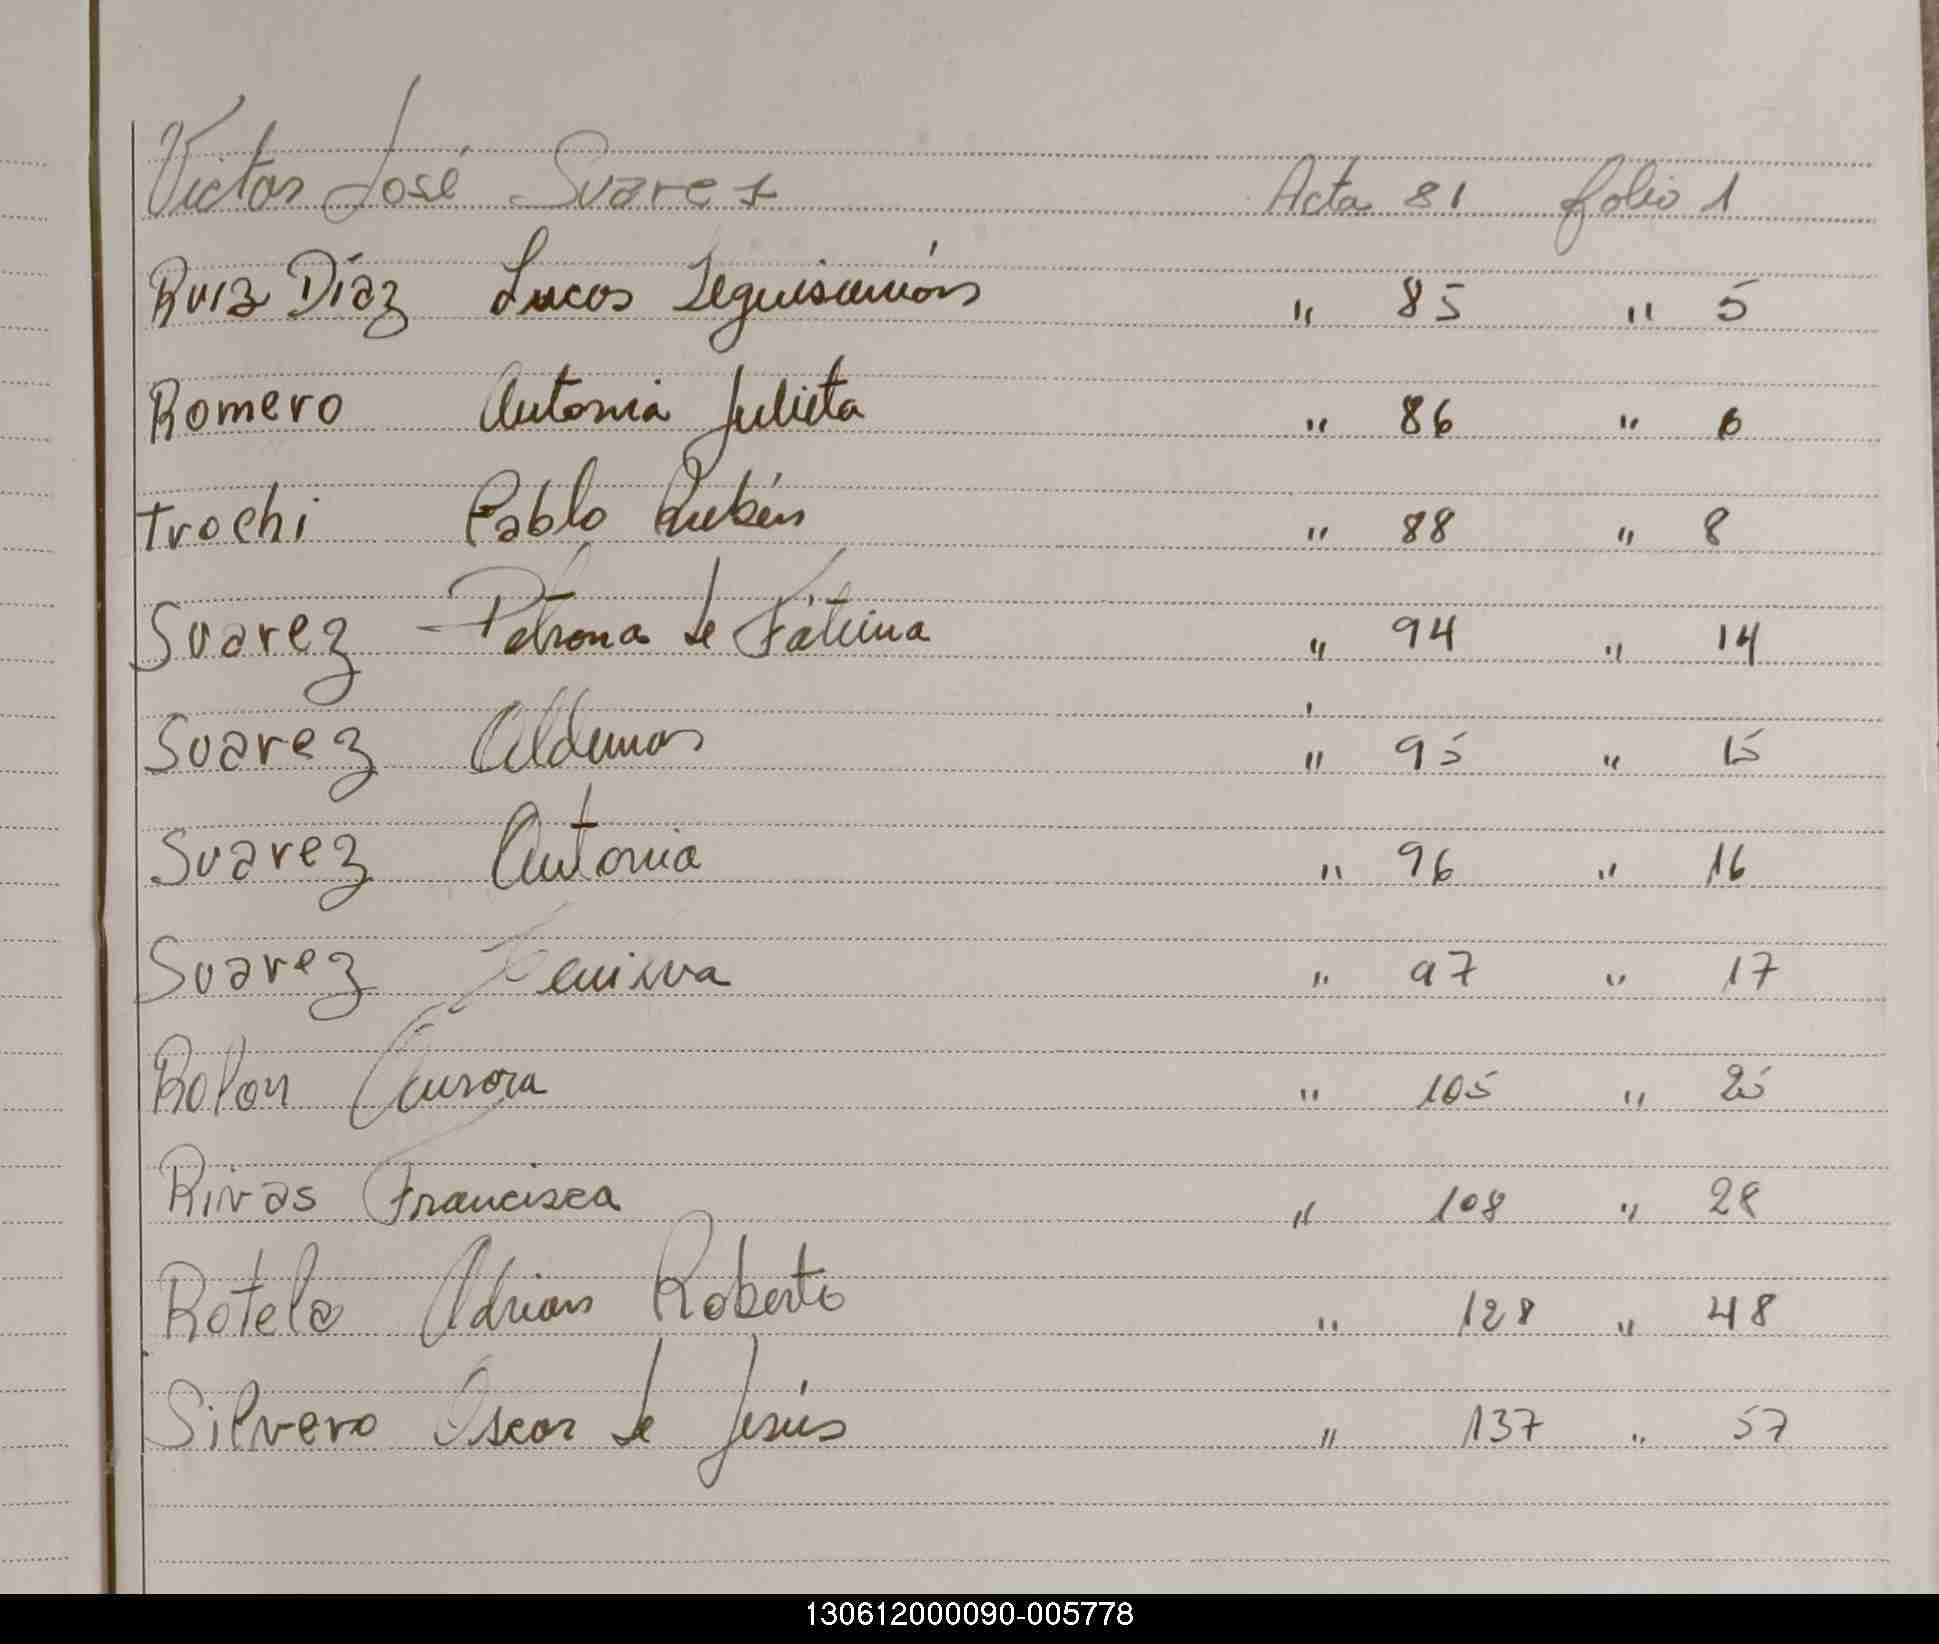 Victor José Suarez Acta 81 folio 1
Ruiz Díaz Lucas Leguisamón " 85 " 5
Romero Antonia Julieta " 86 " 6
Trochi Pablo Rubén " 88 " 8
Suarez Petrona de Fátima " 94 " 14
Suarez Aldemar " 95 " 15
Suarez Antonia " 96 " 16
Suarez " 97 " 17
Rolon Aurora " 105 " 25
Rivas Francisca " 108 " 28
Rotela Adrian Roberto " 128 " 48
Silvero Oscar de Jesús " 137 " 57
130612000090-005778